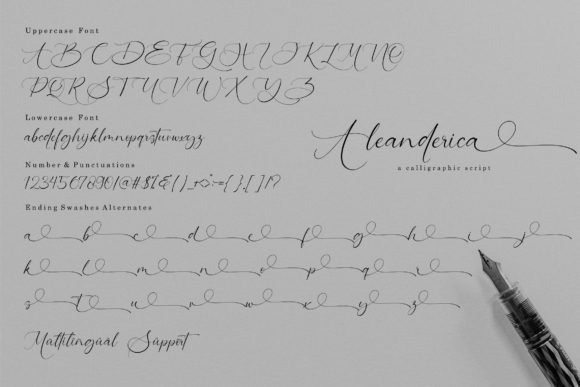 Uppercase Font
A B C D E F G H I J K L M N O
P Q R S T U V W X Y Z
Lowercase Font
abcdefghijklmnopqrstuvwxyz
Aleanderica
a calligraphic script
Number & Punctuations
Ending Swashes Alternates
a b c d e f g h i j
k l m n o p q r
s t u v w x y z
Multilingual Support